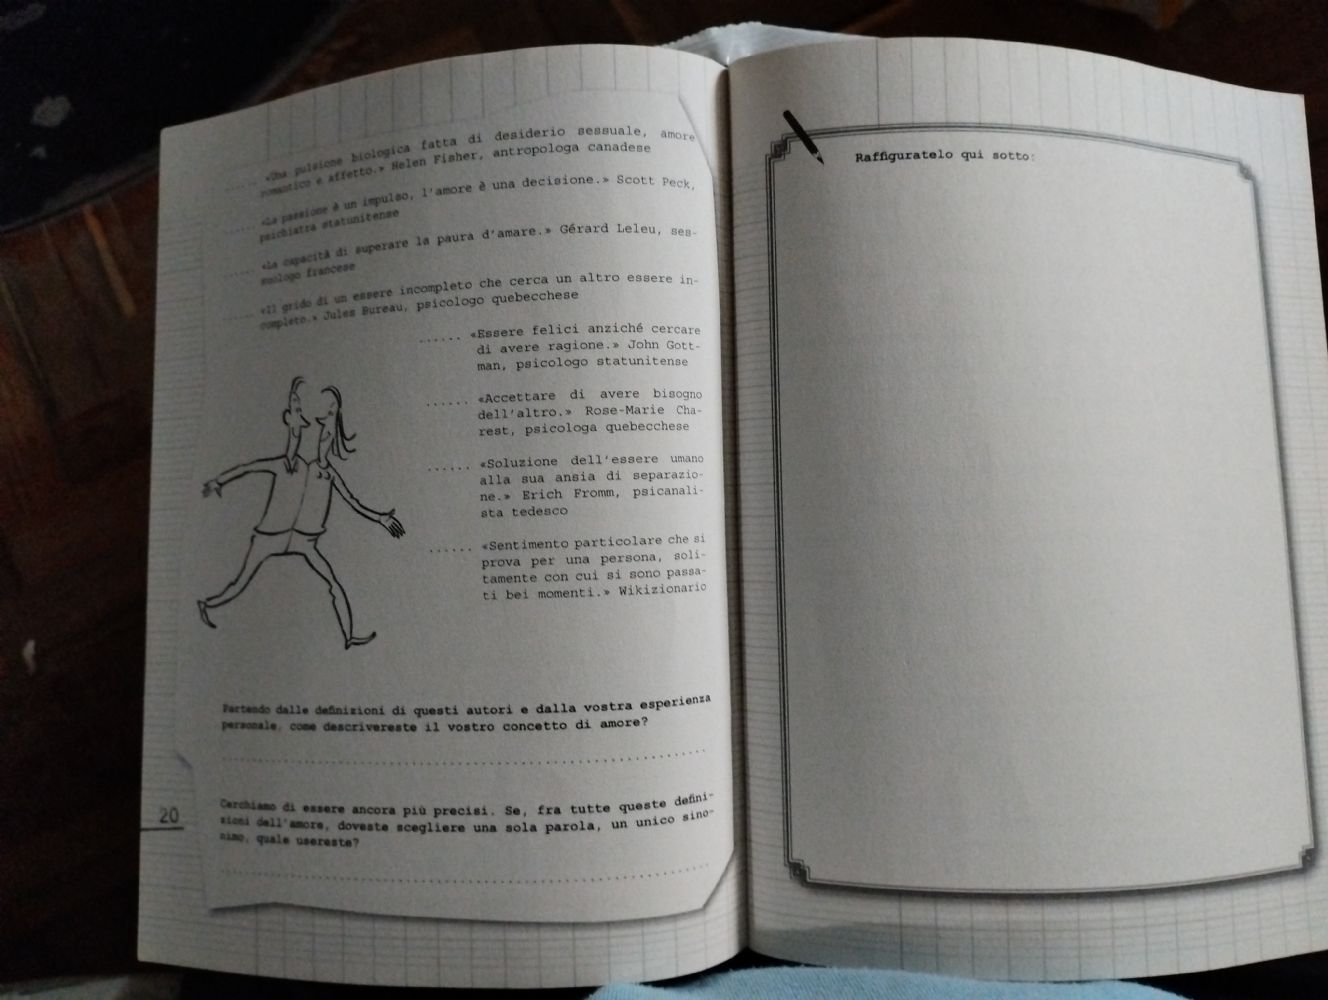 ...... «Una pulsione biologica fatta di desiderio sessuale, amore
romantico e affetto.» Helen Fisher, antropologa canadese
...... «La passione è un impulso, l'amore è una decisione.» Scott Peck,
psichiatra statunitense
...... «La capacità di superare la paura d'amare.» Gérard Leleu, ses-
suologo francese
...... «Il grido di un essere incompleto che cerca un altro essere in-
completo.» Jules Bureau, psicologo quebecchese
...... «Essere felici anziché cercare
di avere ragione.» John Gott-
man, psicologo statunitense
...... «Accettare di avere bisogno
dell'altro.» Rose-Marie Cha-
rest, psicologa quebecchese
...... «Soluzione dell'essere umano
alla sua ansia di separazio-
ne.» Erich Fromm, psicanali-
sta tedesco
...... «Sentimento particolare che si
prova per una persona, soli-
tamente con cui si sono passa-
ti bei momenti.» Wikizionario
Partendo dalle definizioni di questi autori e dalla vostra esperienza
personale, come descrivereste il vostro concetto di amore?
Cerchiamo di essere ancora più precisi. Se, fra tutte queste defini-
zioni dell'amore, doveste scegliere una sola parola, un unico sino-
nimo, quale usereste?
20
Raffiguratelo qui sotto: